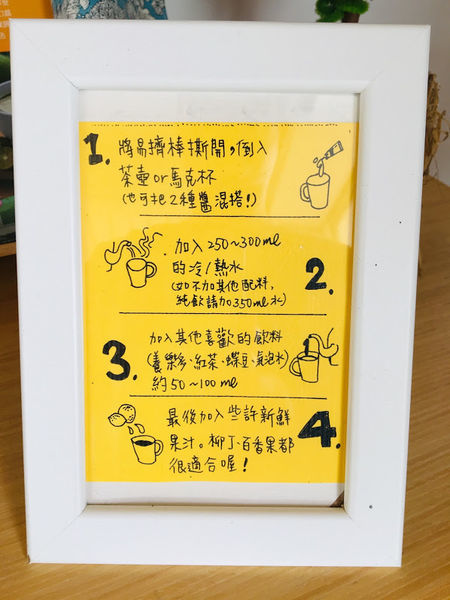 1. 將易擠棒撕開，倒入
茶壺or馬克杯
(也可把2種醬混搭!)
加入250~300ml
的冷/熱水
(如不加其他配料,
純飲請加350ml水)
2.
3.
加入其他喜歡的飲料
(養樂多、紅茶、蝶豆、氣泡水)
約50~100ml
最後加入些許新鮮
果汁。柳丁、百香果都
很適合喔!
4.